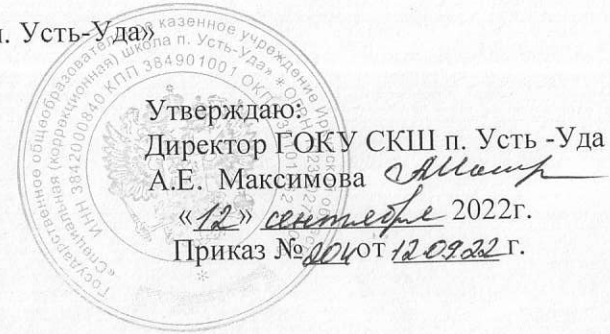 п. Усть-Уда»
Утверждаю:
Директор ГОКУ СКШ п. Усть -Уда
А.Е. Максимова
«12» сентября 2022г.
Приказ № от 12.09.22 г.
Государственное общеобразовательное казенное учреждение
«Специальная (коррекционная) школа п. Усть-Уда»
ИНН 3842000840 КПП 384901001